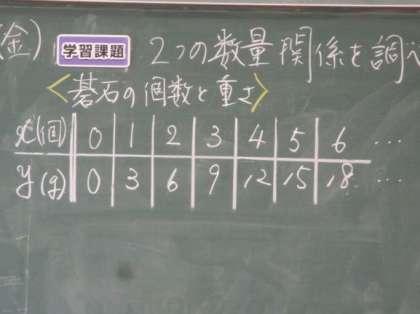 (金) 学習課題 2つの数量関係を調べ
<碁石の個数と重さ>
x(個) 0 1 2 3 4 5 6 …
y(g) 0 3 6 9 12 15 18 …